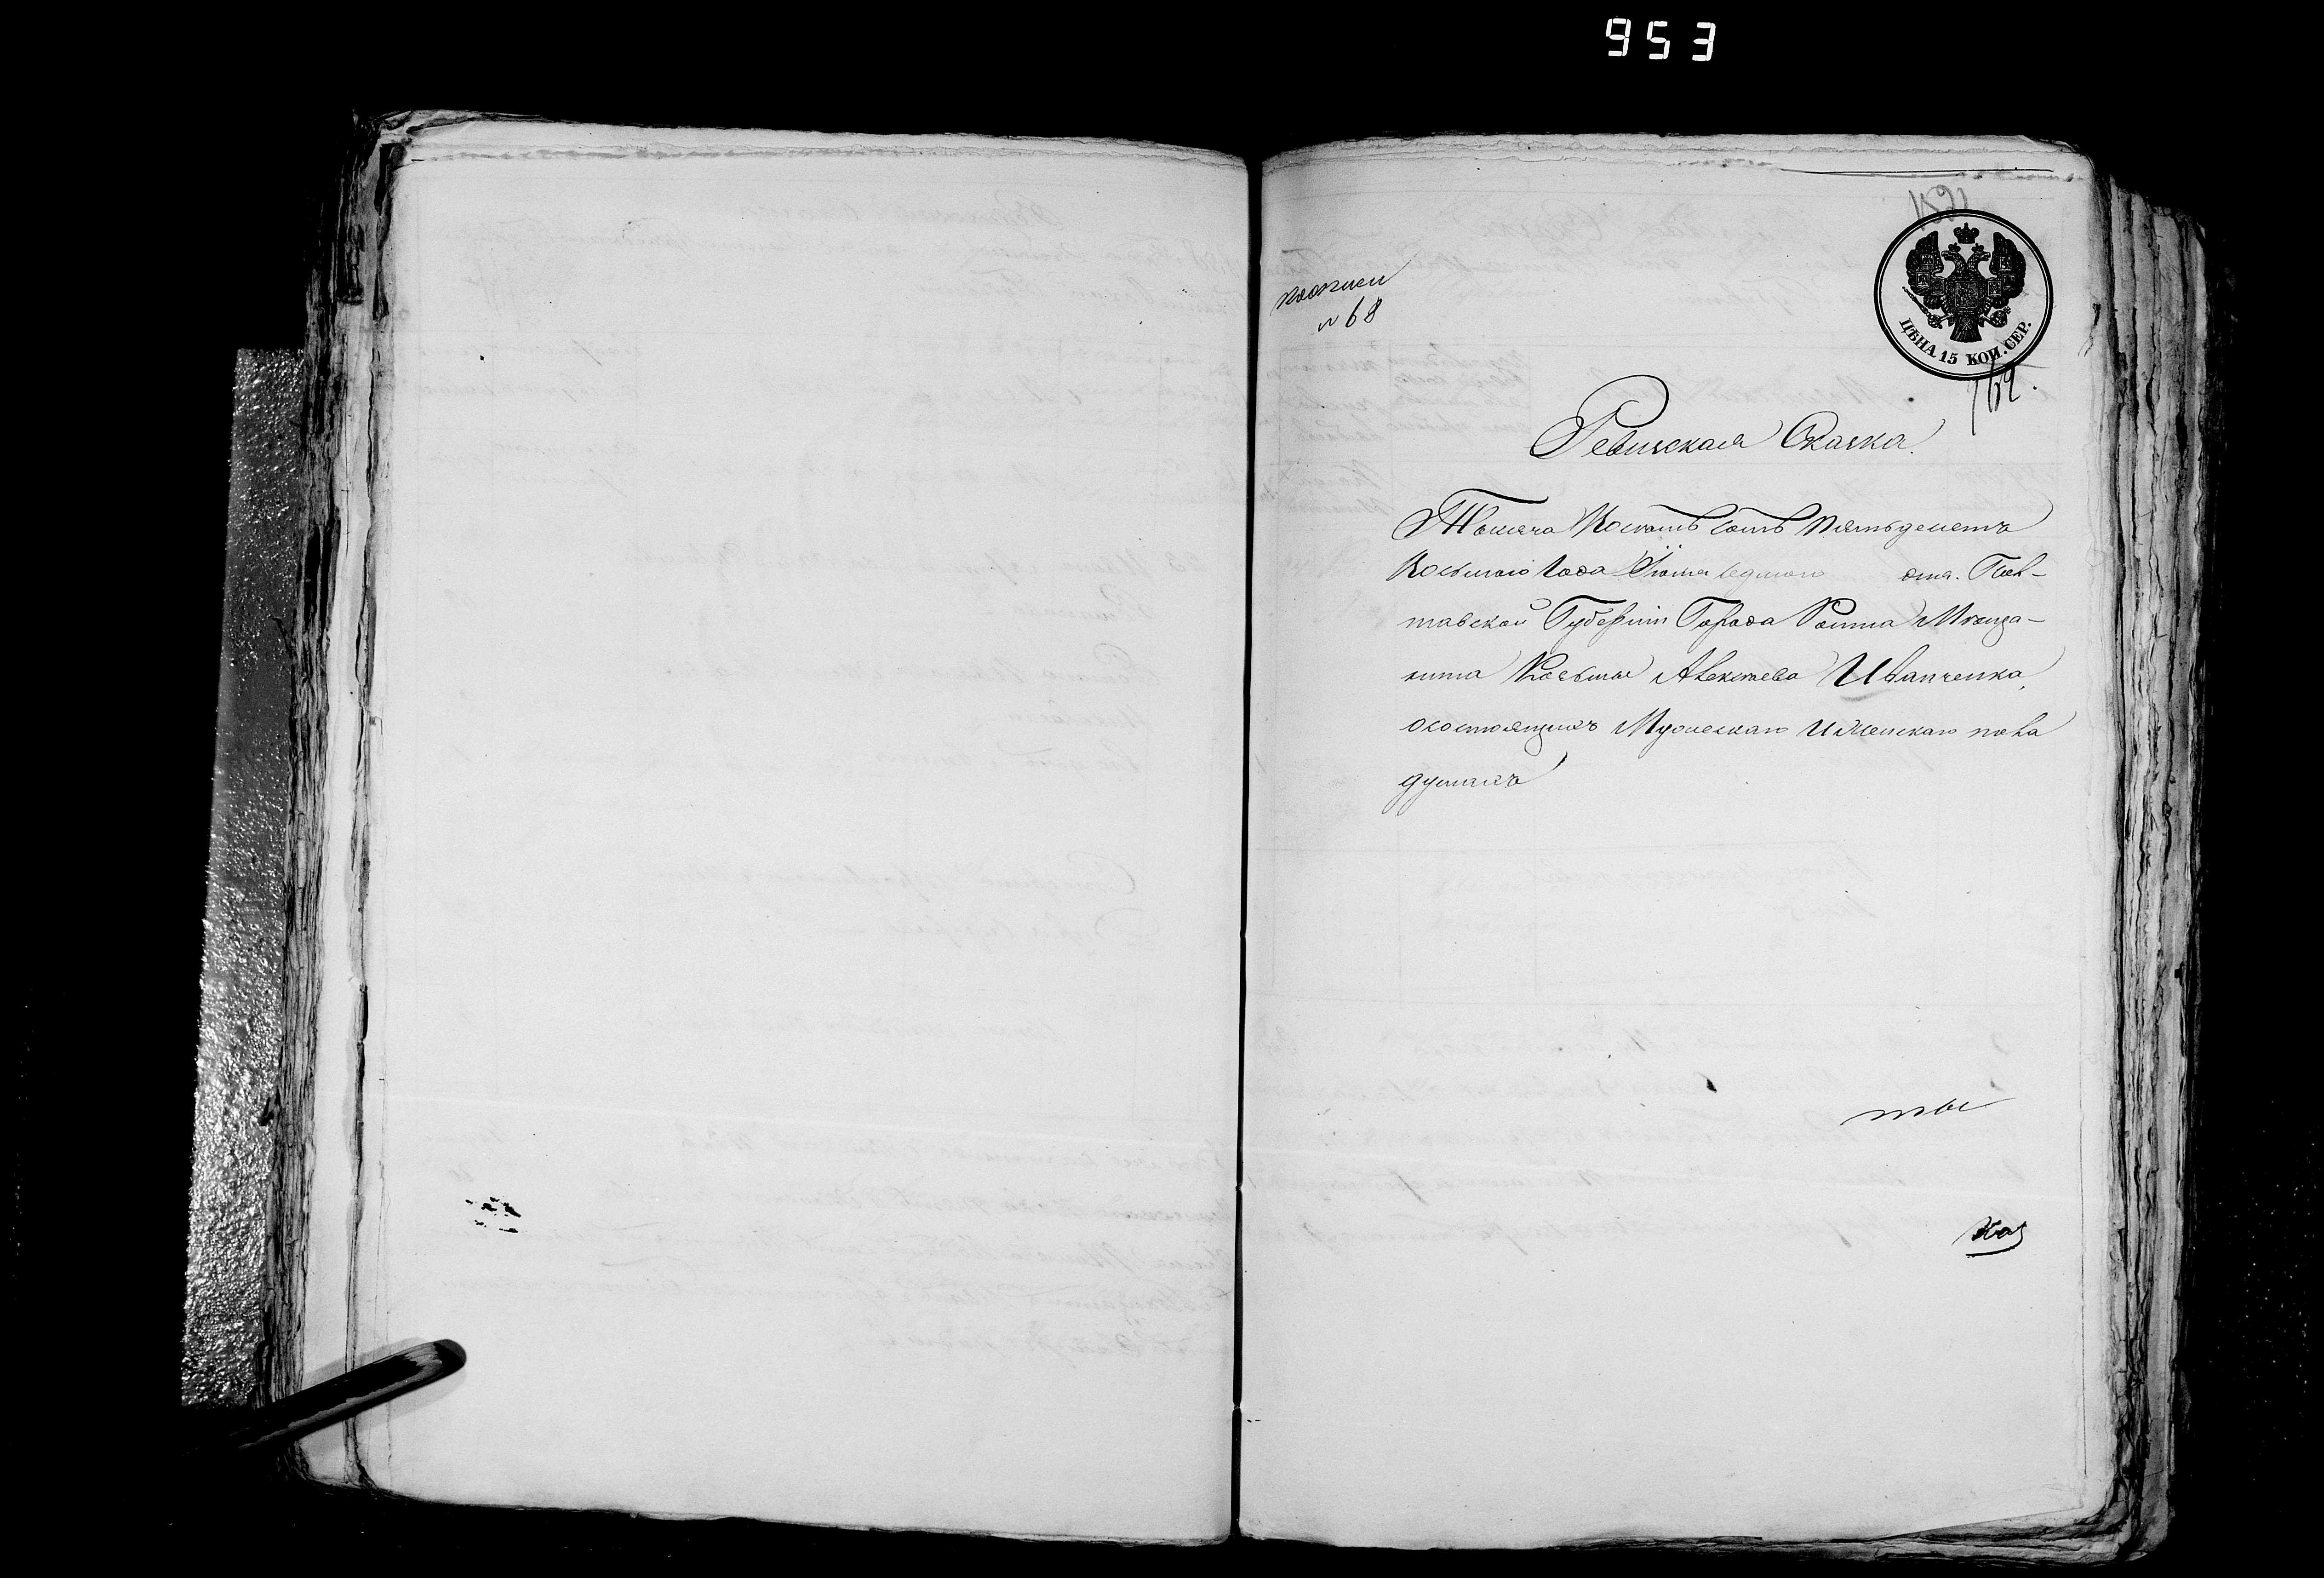 953
№ 68
ЦѢНА 15 КОП. СЕР.
762.
Ревизская Сказка.
Тысяча Восемь сотъ пятьдесятъ
Восьмого Года Іюня седмого дня. Пол-
тавской Губерніи Города Ромна Мѣща-
нина Косьмы Алексѣева Иванченка,
осостоящихъ Мужескаго и Женскаго пола
душахъ